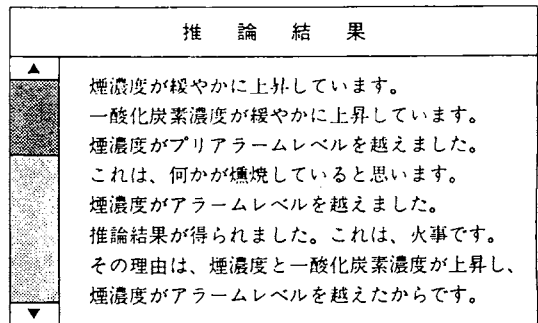 推論結果
煙濃度が緩やかに上昇しています。
一酸化炭素濃度が緩やかに上昇しています。
煙濃度がプリアラームレベルを越えました。
これは、何かが燻焼していると思います。
煙濃度がアラームレベルを越えました。
推論結果が得られました。これは、火事です。
その理由は、煙濃度と一酸化炭素濃度が上昇し、
煙濃度がアラームレベルを越えたからです。